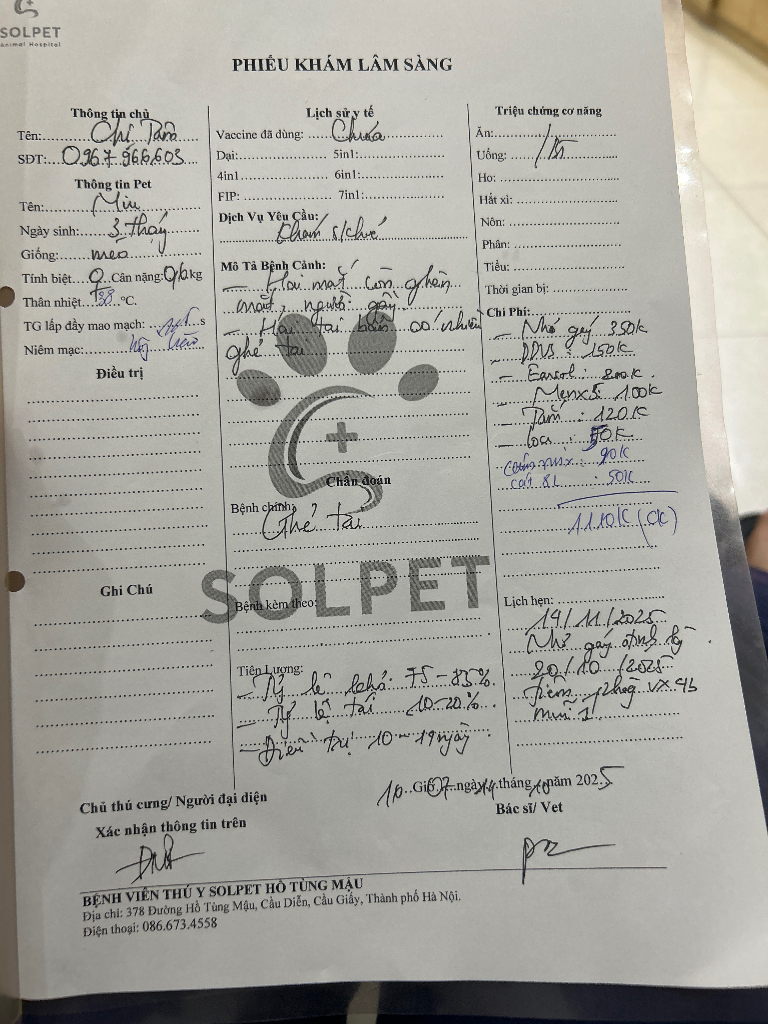 SOLPET
Animal Hospital
PHIẾU KHÁM LÂM SÀNG
Thông tin chủ
Tên: Chị Tâm
SĐT: 0967.966.603
Thông tin Pet
Tên: Miu
Ngày sinh: 3 thág
Giống: mèo
Tính biệt ♀ Cân nặng: 0,6 kg
Thân nhiệt 38 °C.
TG lấp đầy mao mạch: s
Niêm mạc:
Điều trị
Ghi Chú
Lịch sử y tế
Vaccine đã dùng: Chưa
Dại: 5in1:
4in1 6in1:
FIP: 7in1:
Dịch Vụ Yêu Cầu:
Khám s/khoẻ
Mô Tả Bệnh Cảnh:
- Hai mắt còn ghèn
mắt, người gầy
- Hai tai bẩn có nhiều
ghẻ tai
Chẩn đoán
Bệnh chính: Ghẻ tai
Bệnh kèm theo:
Tiên Lượng:
- Tỷ lệ khỏi: 75-85%
- Tỷ lệ tái 10-20%
- Điều trị 10-14 ngày.
Triệu chứng cơ năng
Ăn:
Uống:
Ho:
Hắt xì:
Nôn:
Phân:
Tiểu:
Thời gian bị:
Chi Phí:
- Nhỏ gáy 350k
- DDVS : 150k
- : 200k.
- 100k
- Tắm : 120k
- : 50k
90k
cát 8L : 50k
1110k (CK)
Lịch hẹn:
14/11/2025
Nhỏ gáy định kỳ.
20/10/2025
Tiêm phòg VX 4in1
mũi 1
10 Giờ 07 ngày 14 tháng 10 năm 2025
Chủ thú cưng/ Người đại diện
Xác nhận thông tin trên
Bác sĩ/ Vet
BỆNH VIỆN THÚ Y SOLPET HỒ TÙNG MẬU
Địa chỉ: 378 Đường Hồ Tùng Mậu, Cầu Diễn, Cầu Giấy, Thành phố Hà Nội.
Điện thoại: 086.673.4558
SOLPET